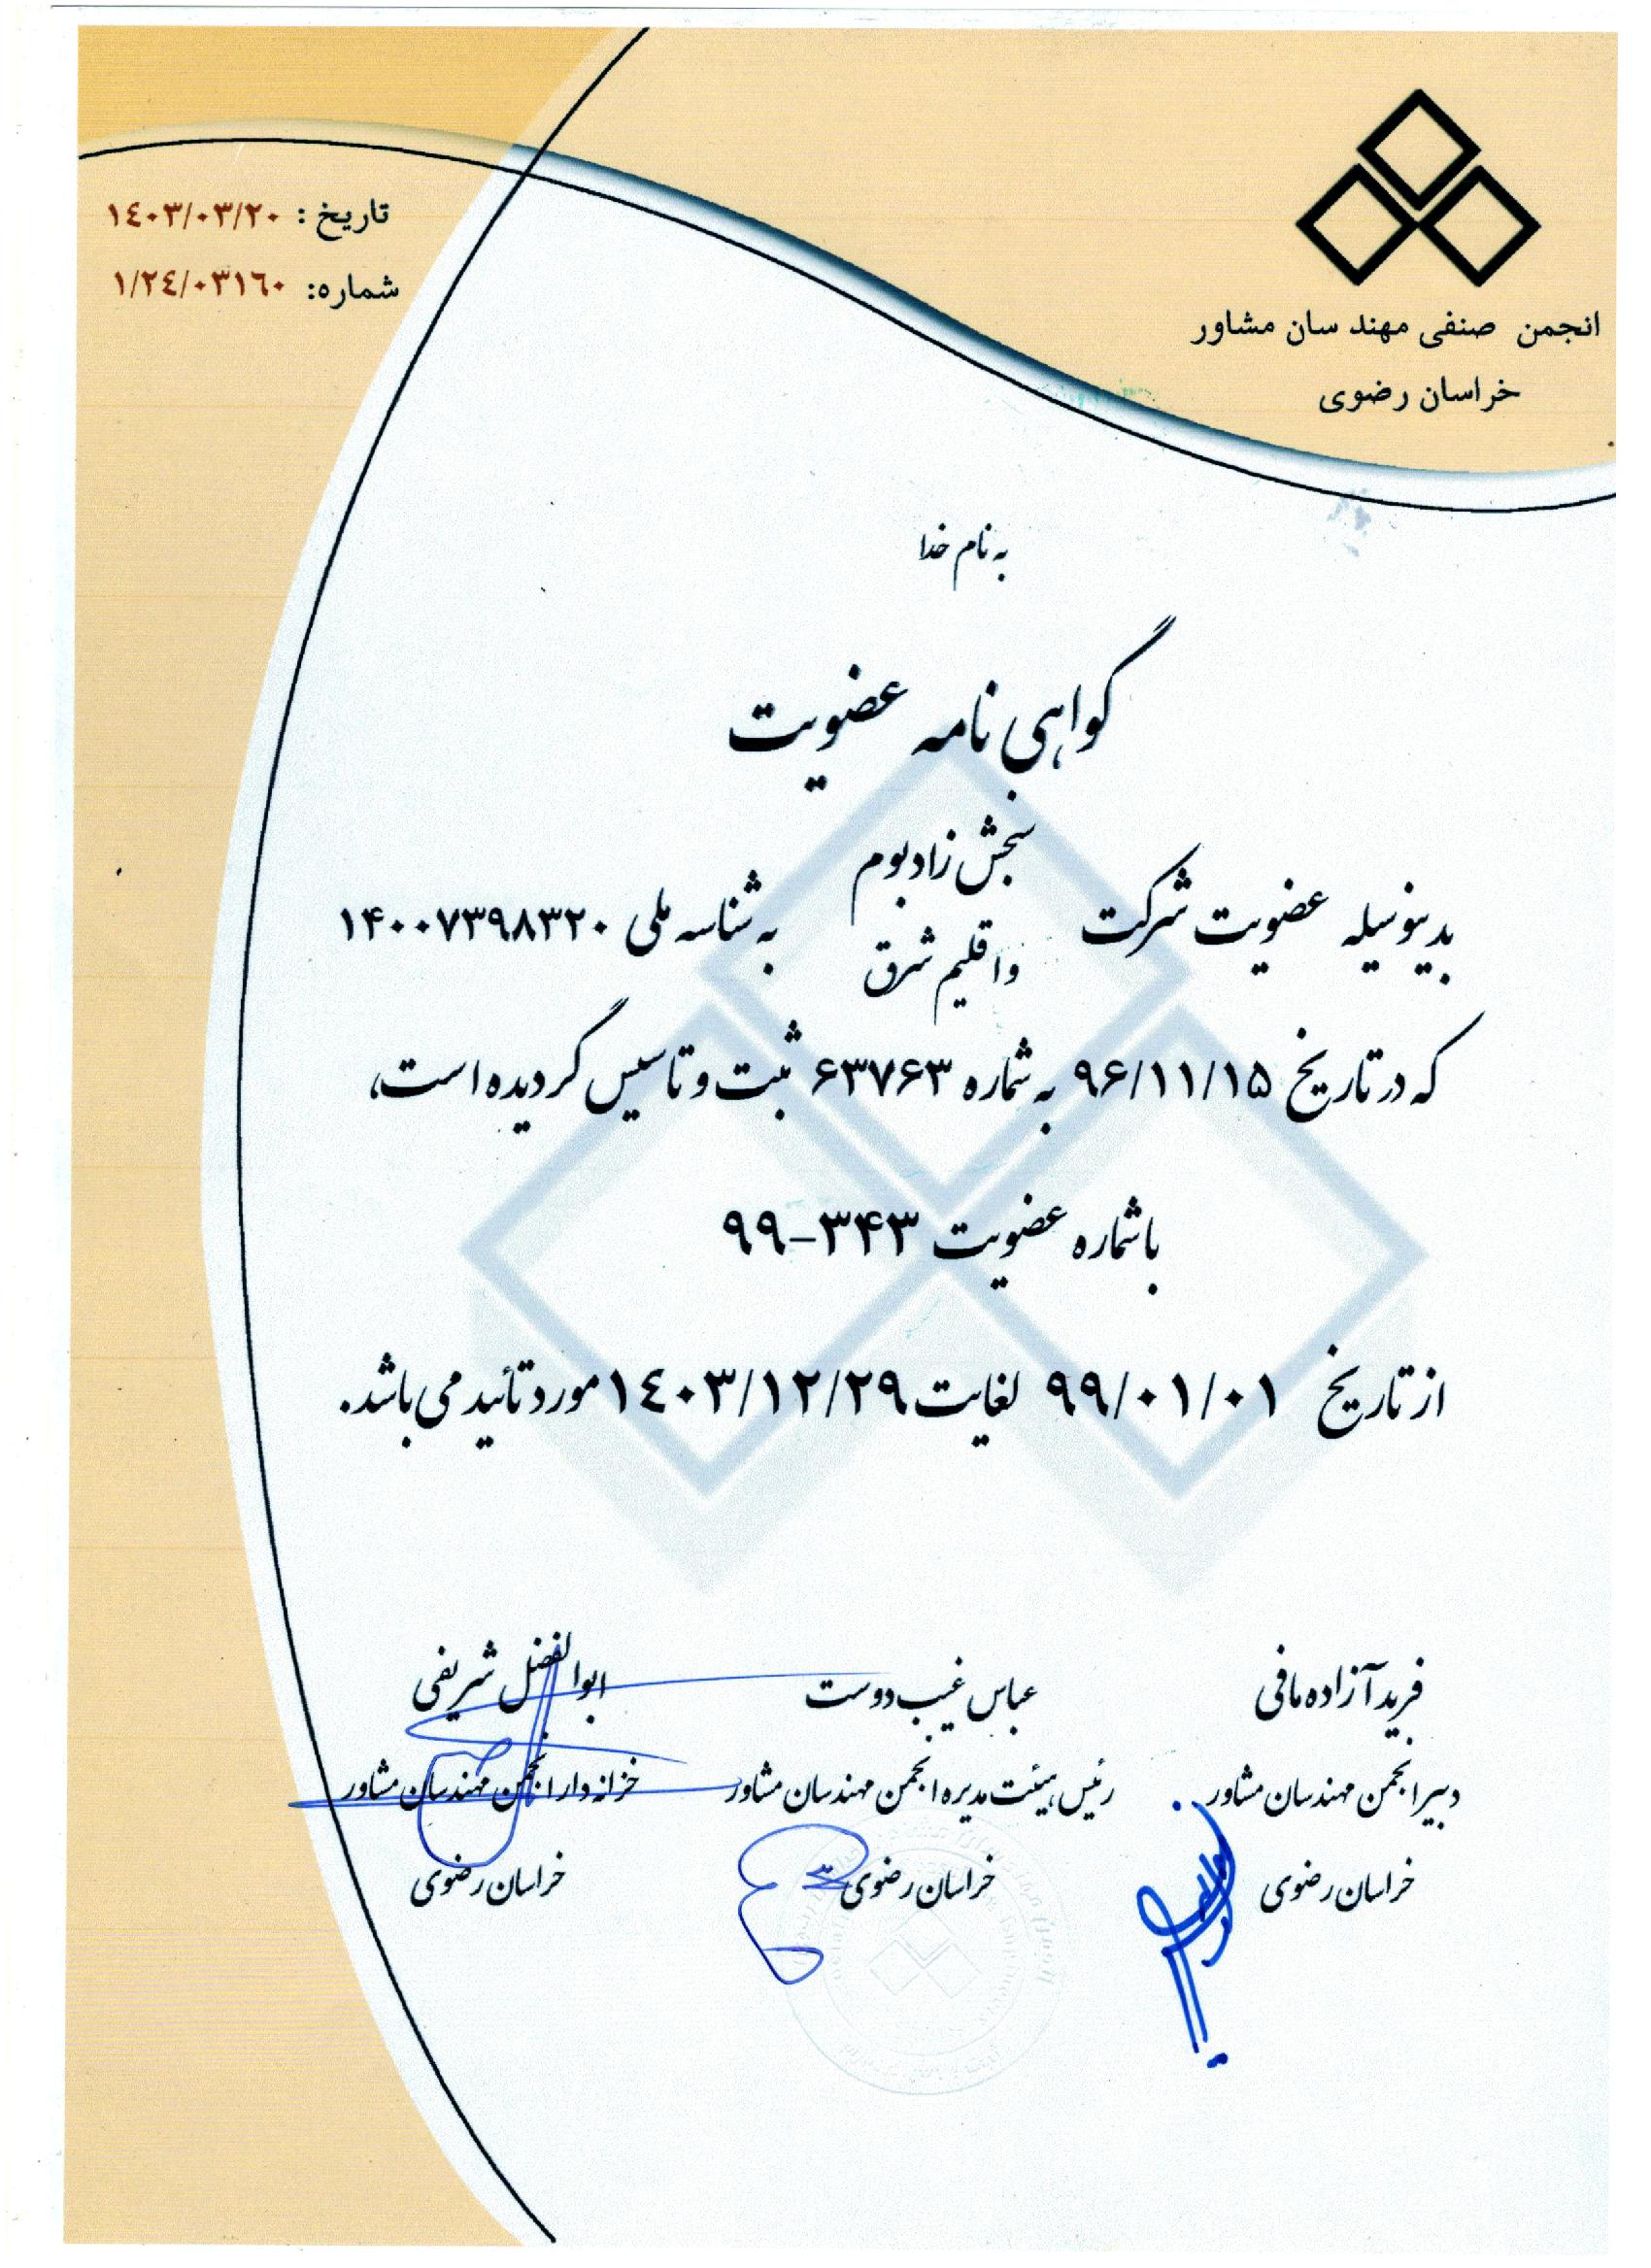 انجمن صنفی مهندسان مشاور
خراسان رضوی
تاریخ : ١٤٠٣/٠٣/٢٠
شماره: ١/٢٤/٠٣١٦٠
به نام خدا
گواهی نامه عضویت
بدینوسیله عضویت شرکت سنجش زادبوم واقلیم شرق به شناسه ملی ۱۴۰۰۷۳۹۸۳۲۰
که در تاریخ ۹۶/۱۱/۱۵ به شماره ۶۳۷۶۳ ثبت و تاسیس گردیده است،
با شماره عضویت ۳۴۳-۹۹
از تاریخ ۹۹/۰۱/۰۱ لغایت ١٤٠٣/١٢/٢٩ مورد تأئید می باشد.
فرید آزاده مافی
دبیر انجمن مهندسان مشاور
خراسان رضوی
عباس غیب دوست
رئیس هیئت مدیره انجمن مهندسان مشاور
خراسان رضوی
ابوالفضل شریفی
خزانه دار انجمن مهندسان مشاور
خراسان رضوی